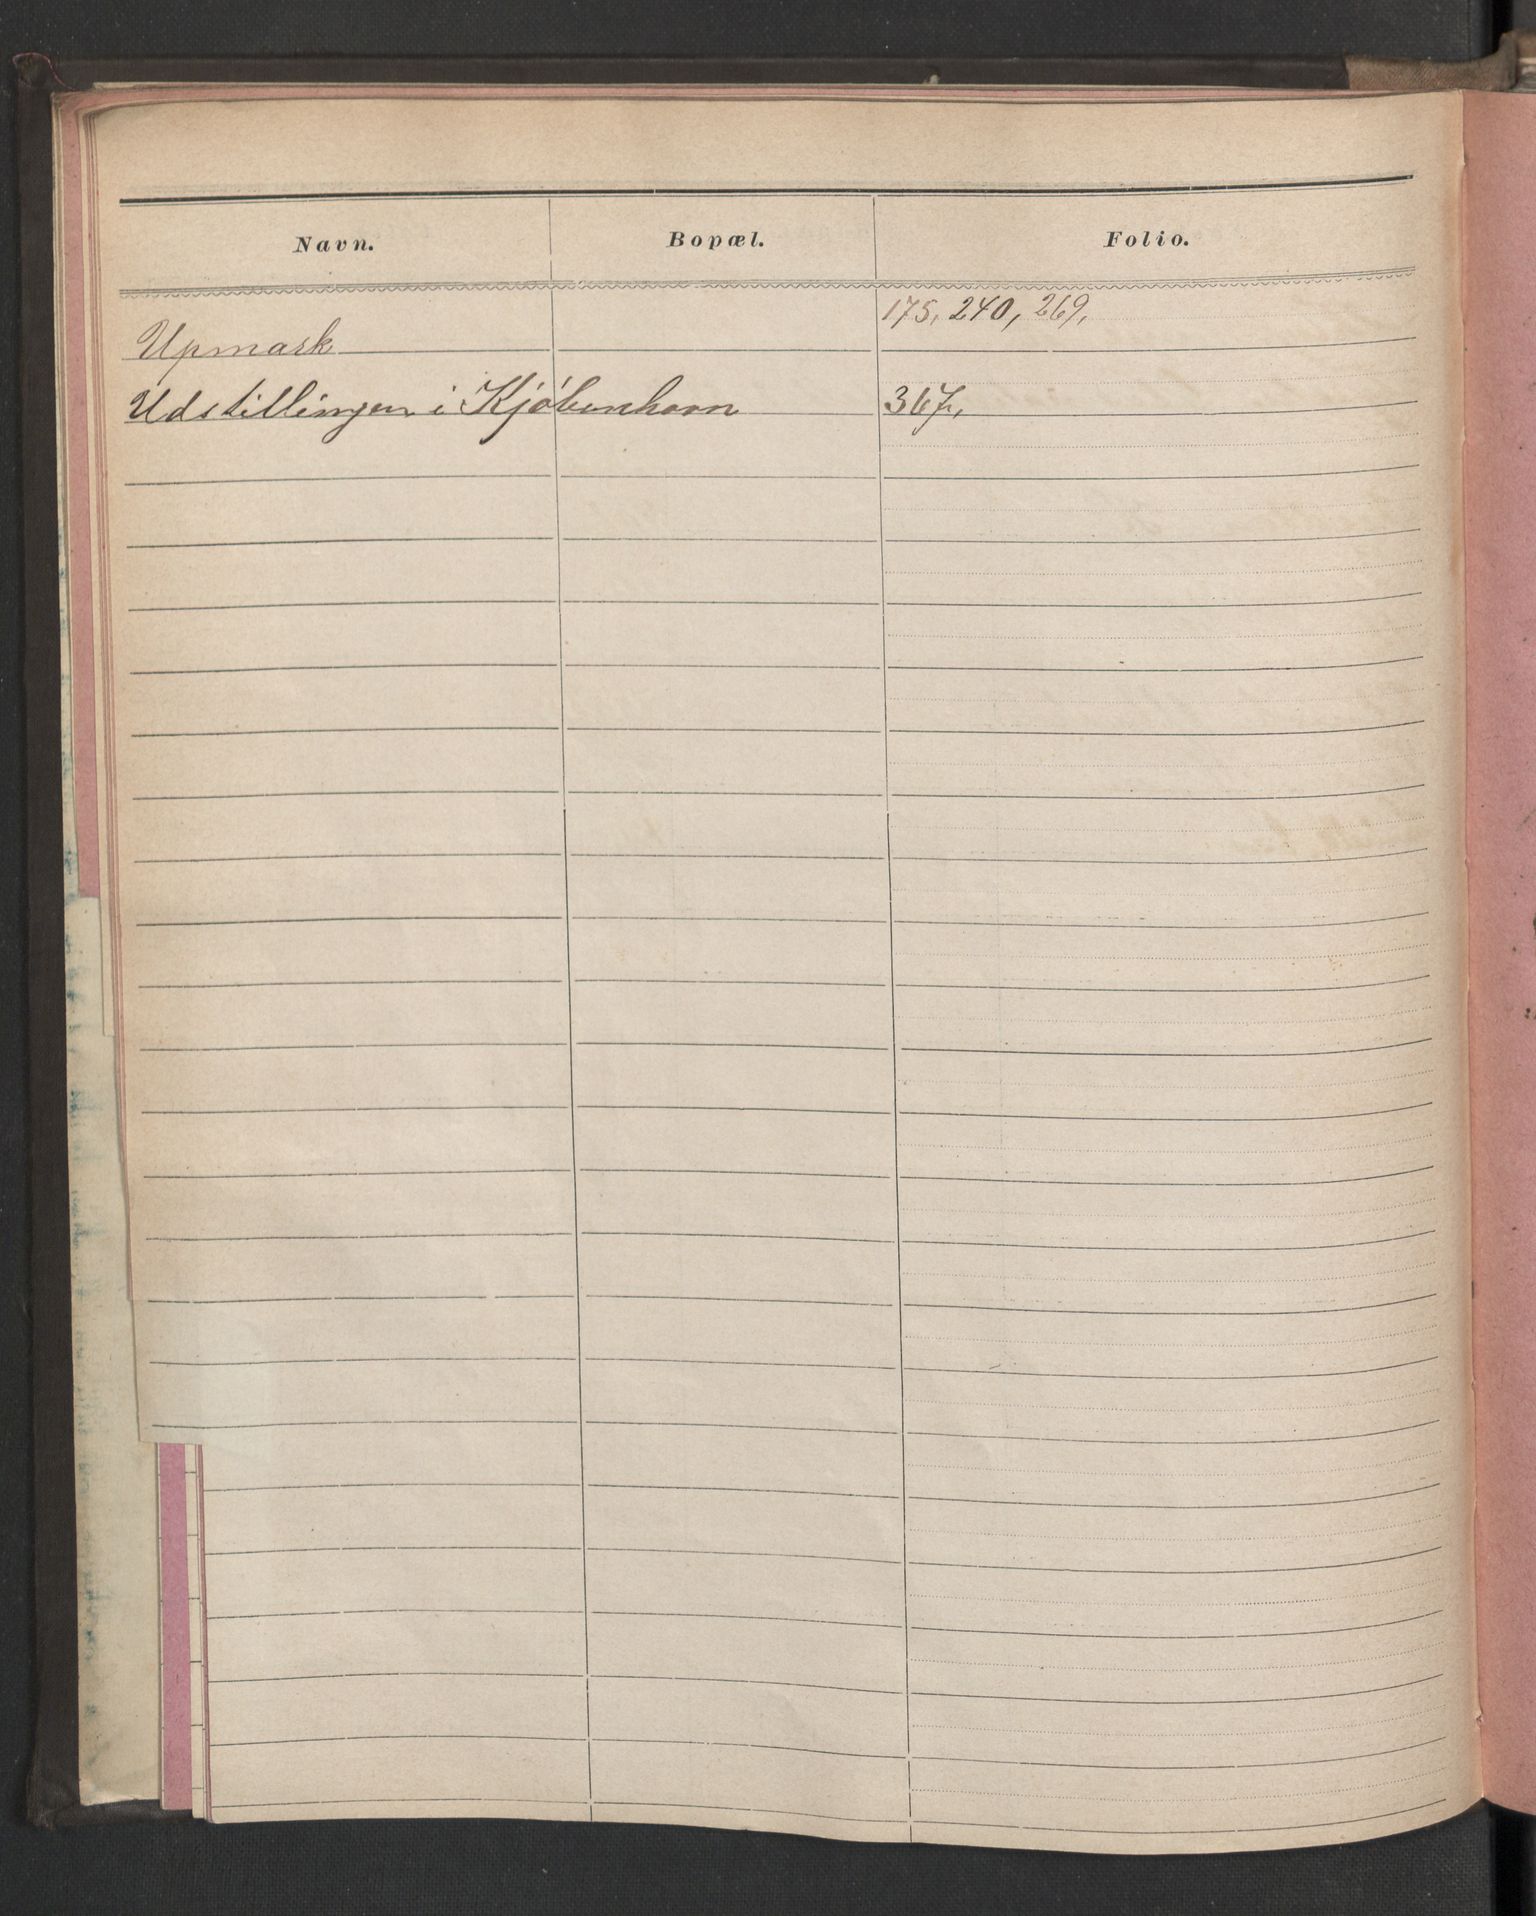 Navn. Bopæl. Folio.
Upmark 175, 240, 269,
Udstillingen i Kjøbenhavn 367,